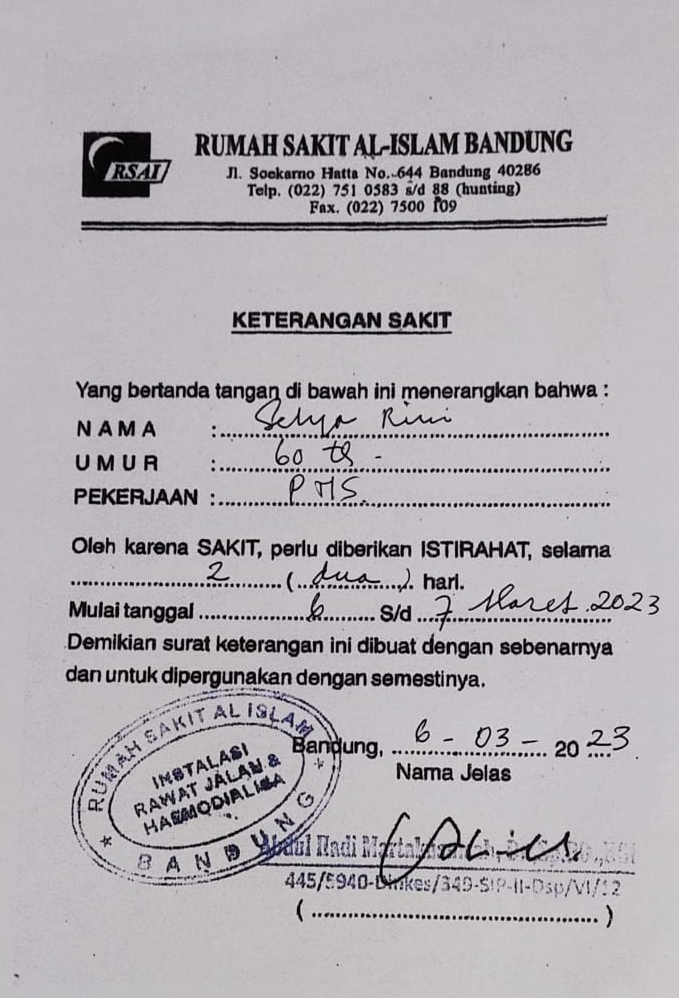 RSAI
RUMAH SAKIT AL-ISLAM BANDUNG
Jl. Soekarno Hatta No. 644 Bandung 40286
Telp. (022) 751 0583 s/d 88 (hunting)
Fax. (022) 7500 109
KETERANGAN SAKIT
Yang bertanda tangan di bawah ini menerangkan bahwa :
NAMA : Setya Rini
UMUR : 60 th -
PEKERJAAN : PNS.
Oleh karena SAKIT, perlu diberikan ISTIRAHAT, selama
2 ( dua ) hari.
Mulai tanggal 6 S/d 7 Maret 2023
Demikian surat keterangan ini dibuat dengan sebenarnya
dan untuk dipergunakan dengan semestinya.
RUMAH SAKIT AL ISLAM
INSTALASI
RAWAT JALAN &
HAEMODIALISA
BANDUNG
Bandung, 6 - 03 - 2023
Nama Jelas
Abdul Hadi
445/5940-Dinkes/349-SIP-II-Dsp/VI/12
(..........................................)